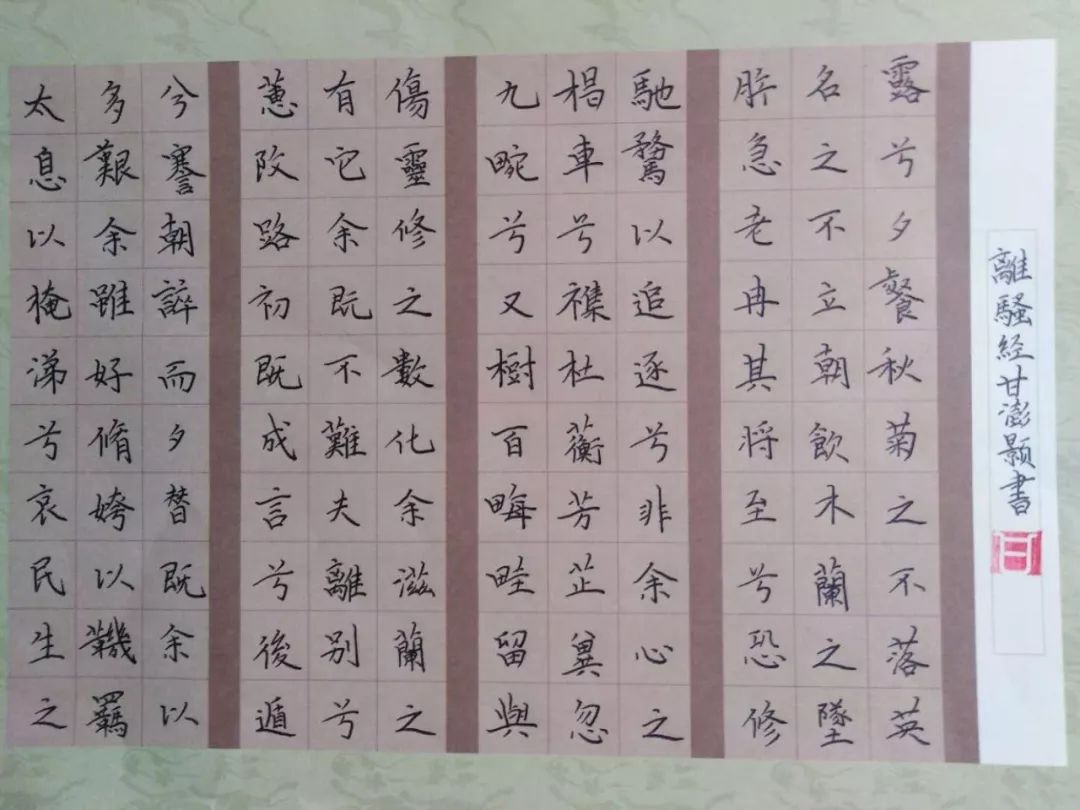 太息以掩涕兮哀民生之
多艱余雖好脩姱以鞿羈
兮謇朝誶而夕替既余以
蕙改路初既成言兮後遁
有它余既不難夫離別兮
傷靈修之數化余滋蘭之
九畹兮又樹百畮畦留與
楬車兮襍杜蘅芳芷冀忽
馳騖以追逐兮非余心之
所急老冉其將至兮恐修
名之不立朝飲木蘭之墜
露兮夕餐秋菊之不落英
離騷經甘澎顥書
甘